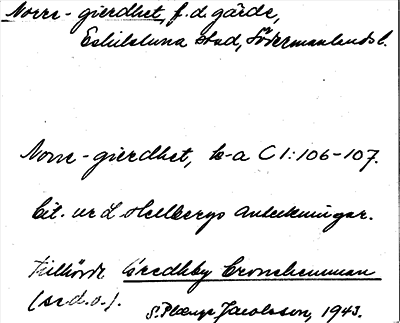 Norre-gierdhet, f.d. gärde,
Eskilstuna stad, Södermanlands l.
Norre-gierdhet, k-a C1:106-107.
Cit. ur L Hellbergs anteckningar.
Tillhörde Gredhby
(se d.o.).
S. Jacobsson, 1943.